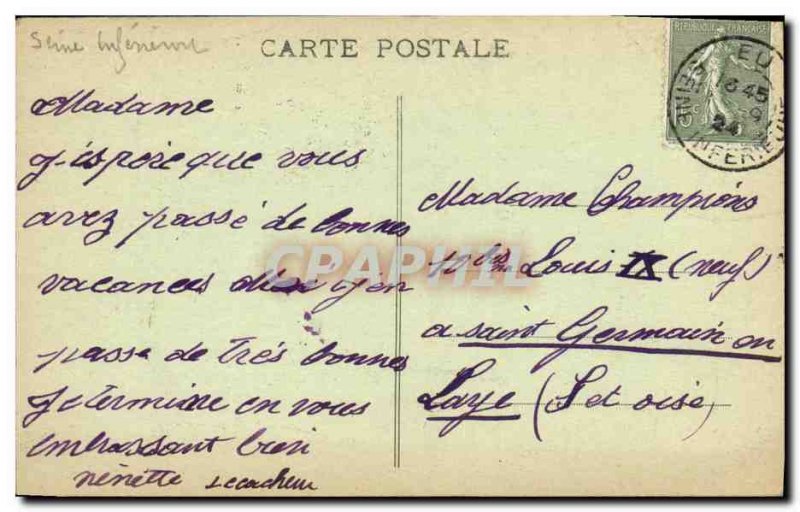 Seine Inférieure
CARTE POSTALE
Madame
j-éspoire que vous
avez passé de bonnes
vacances j'en
passe de trés bonnes
Je termine en vous
embrassant bien
nénette Lecacheur
REPUBLIQUE FRANÇAISE
EU
6 45
9
24
SEINE INFERIEURE
Madame Champions
10 bis rue Louis IX (neuf)
a saint Germain en
Laye (S et oise)
CPAPHIL